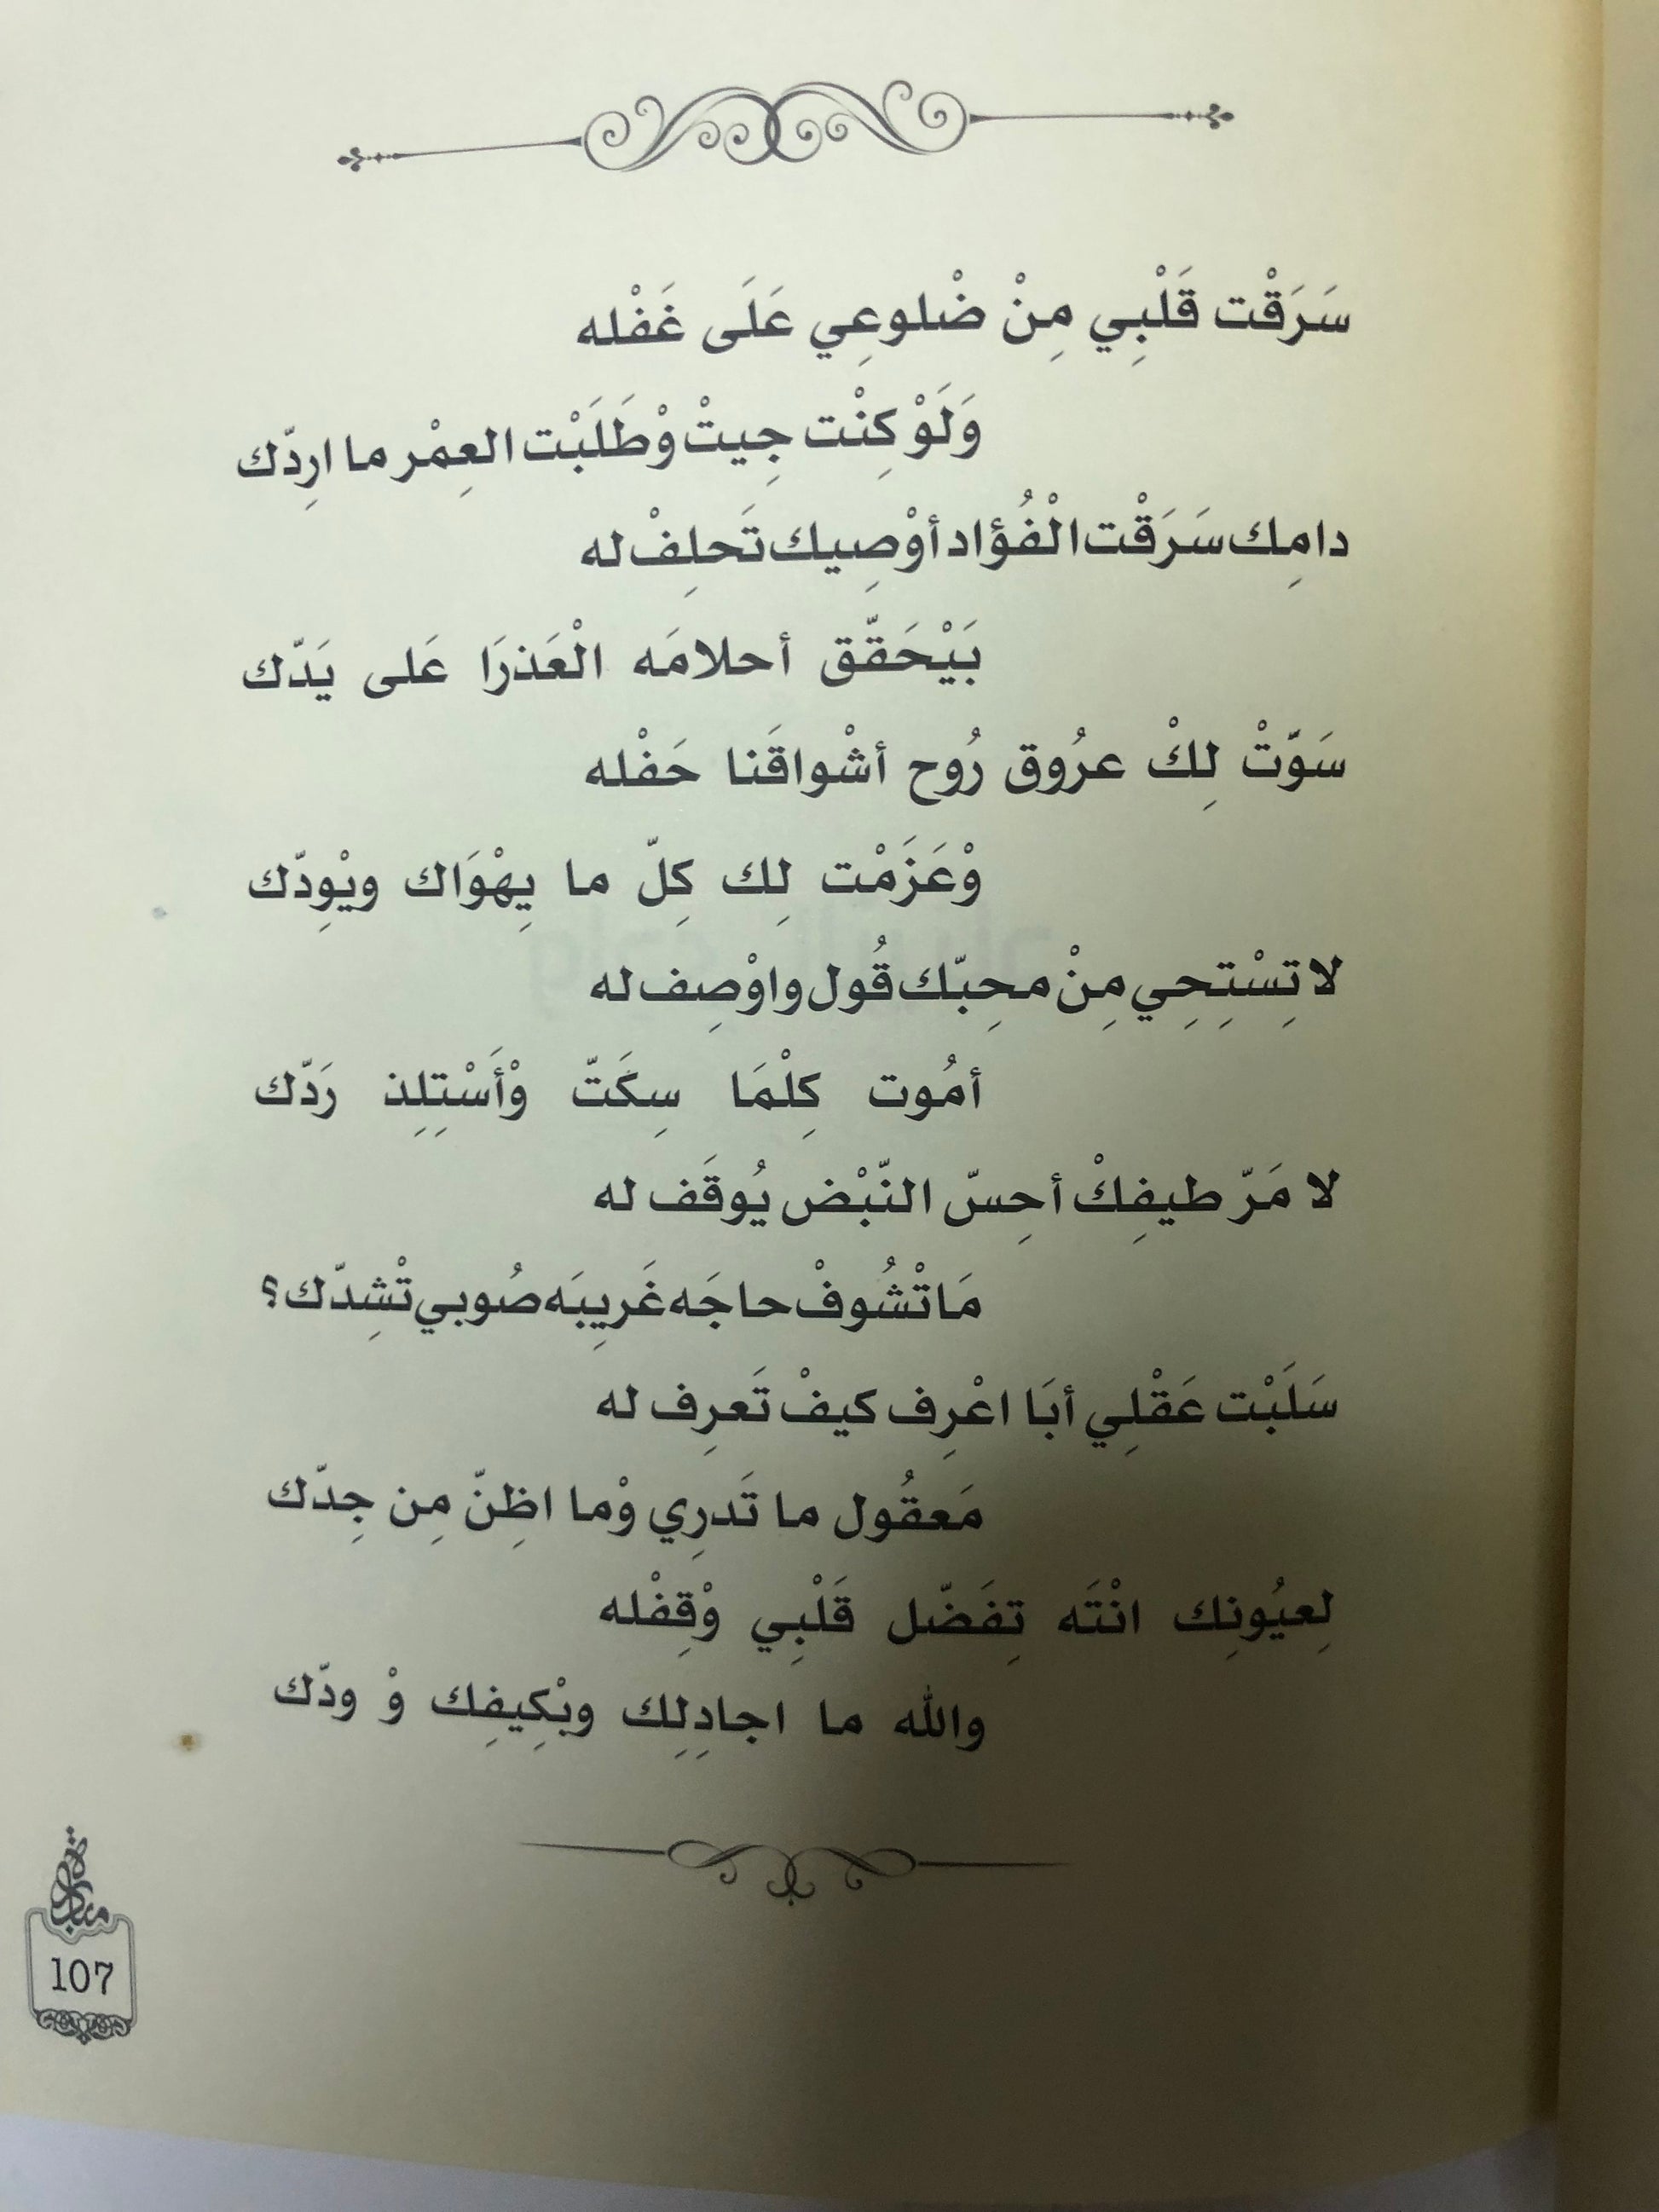 سَرَقْت قَلْبِي مِنْ ضْلوعِي عَلَى غَفْله
وَلَوْ كِنْت جِيتْ وْطَلَبْت العِمْر ما ارِدّك
دامِك سَرَقْت الْفُؤاد أوْصِيك تَحلِفْ له
بَيْحَقّق أحلامَه الْعَذرَا عَلى يَدّك
سَوّتْ لِكْ عرُوق رُوح أشْواقَنا حَفْله
وْعَزَمْت لِك كِلّ ما يِهْوَاك ويْوِدّك
لا تِسْتِحِي مِنْ محِبّك قُول واوْصِف له
أمُوت كِلْمَا سِكَتّ وْأَسْتِلِذ رَدّك
لا مَرّ طيفِكْ أحِسّ النّبْض يُوقَف له
مَا تْشُوفْ حاجَه غَرِيبَه صُوبي تْشِدّك؟
سَلَبْت عَقْلِي أبَا اعْرِف كيفْ تَعرِف له
مَعقُول ما تَدرِي وْما اظِنّ مِن جِدّك
لِعيُونِك انْتَه تِفَضّل قَلْبِي وْقِفْله
والله ما اجادِلِك وبْكِيفِك وْ ودّك
107